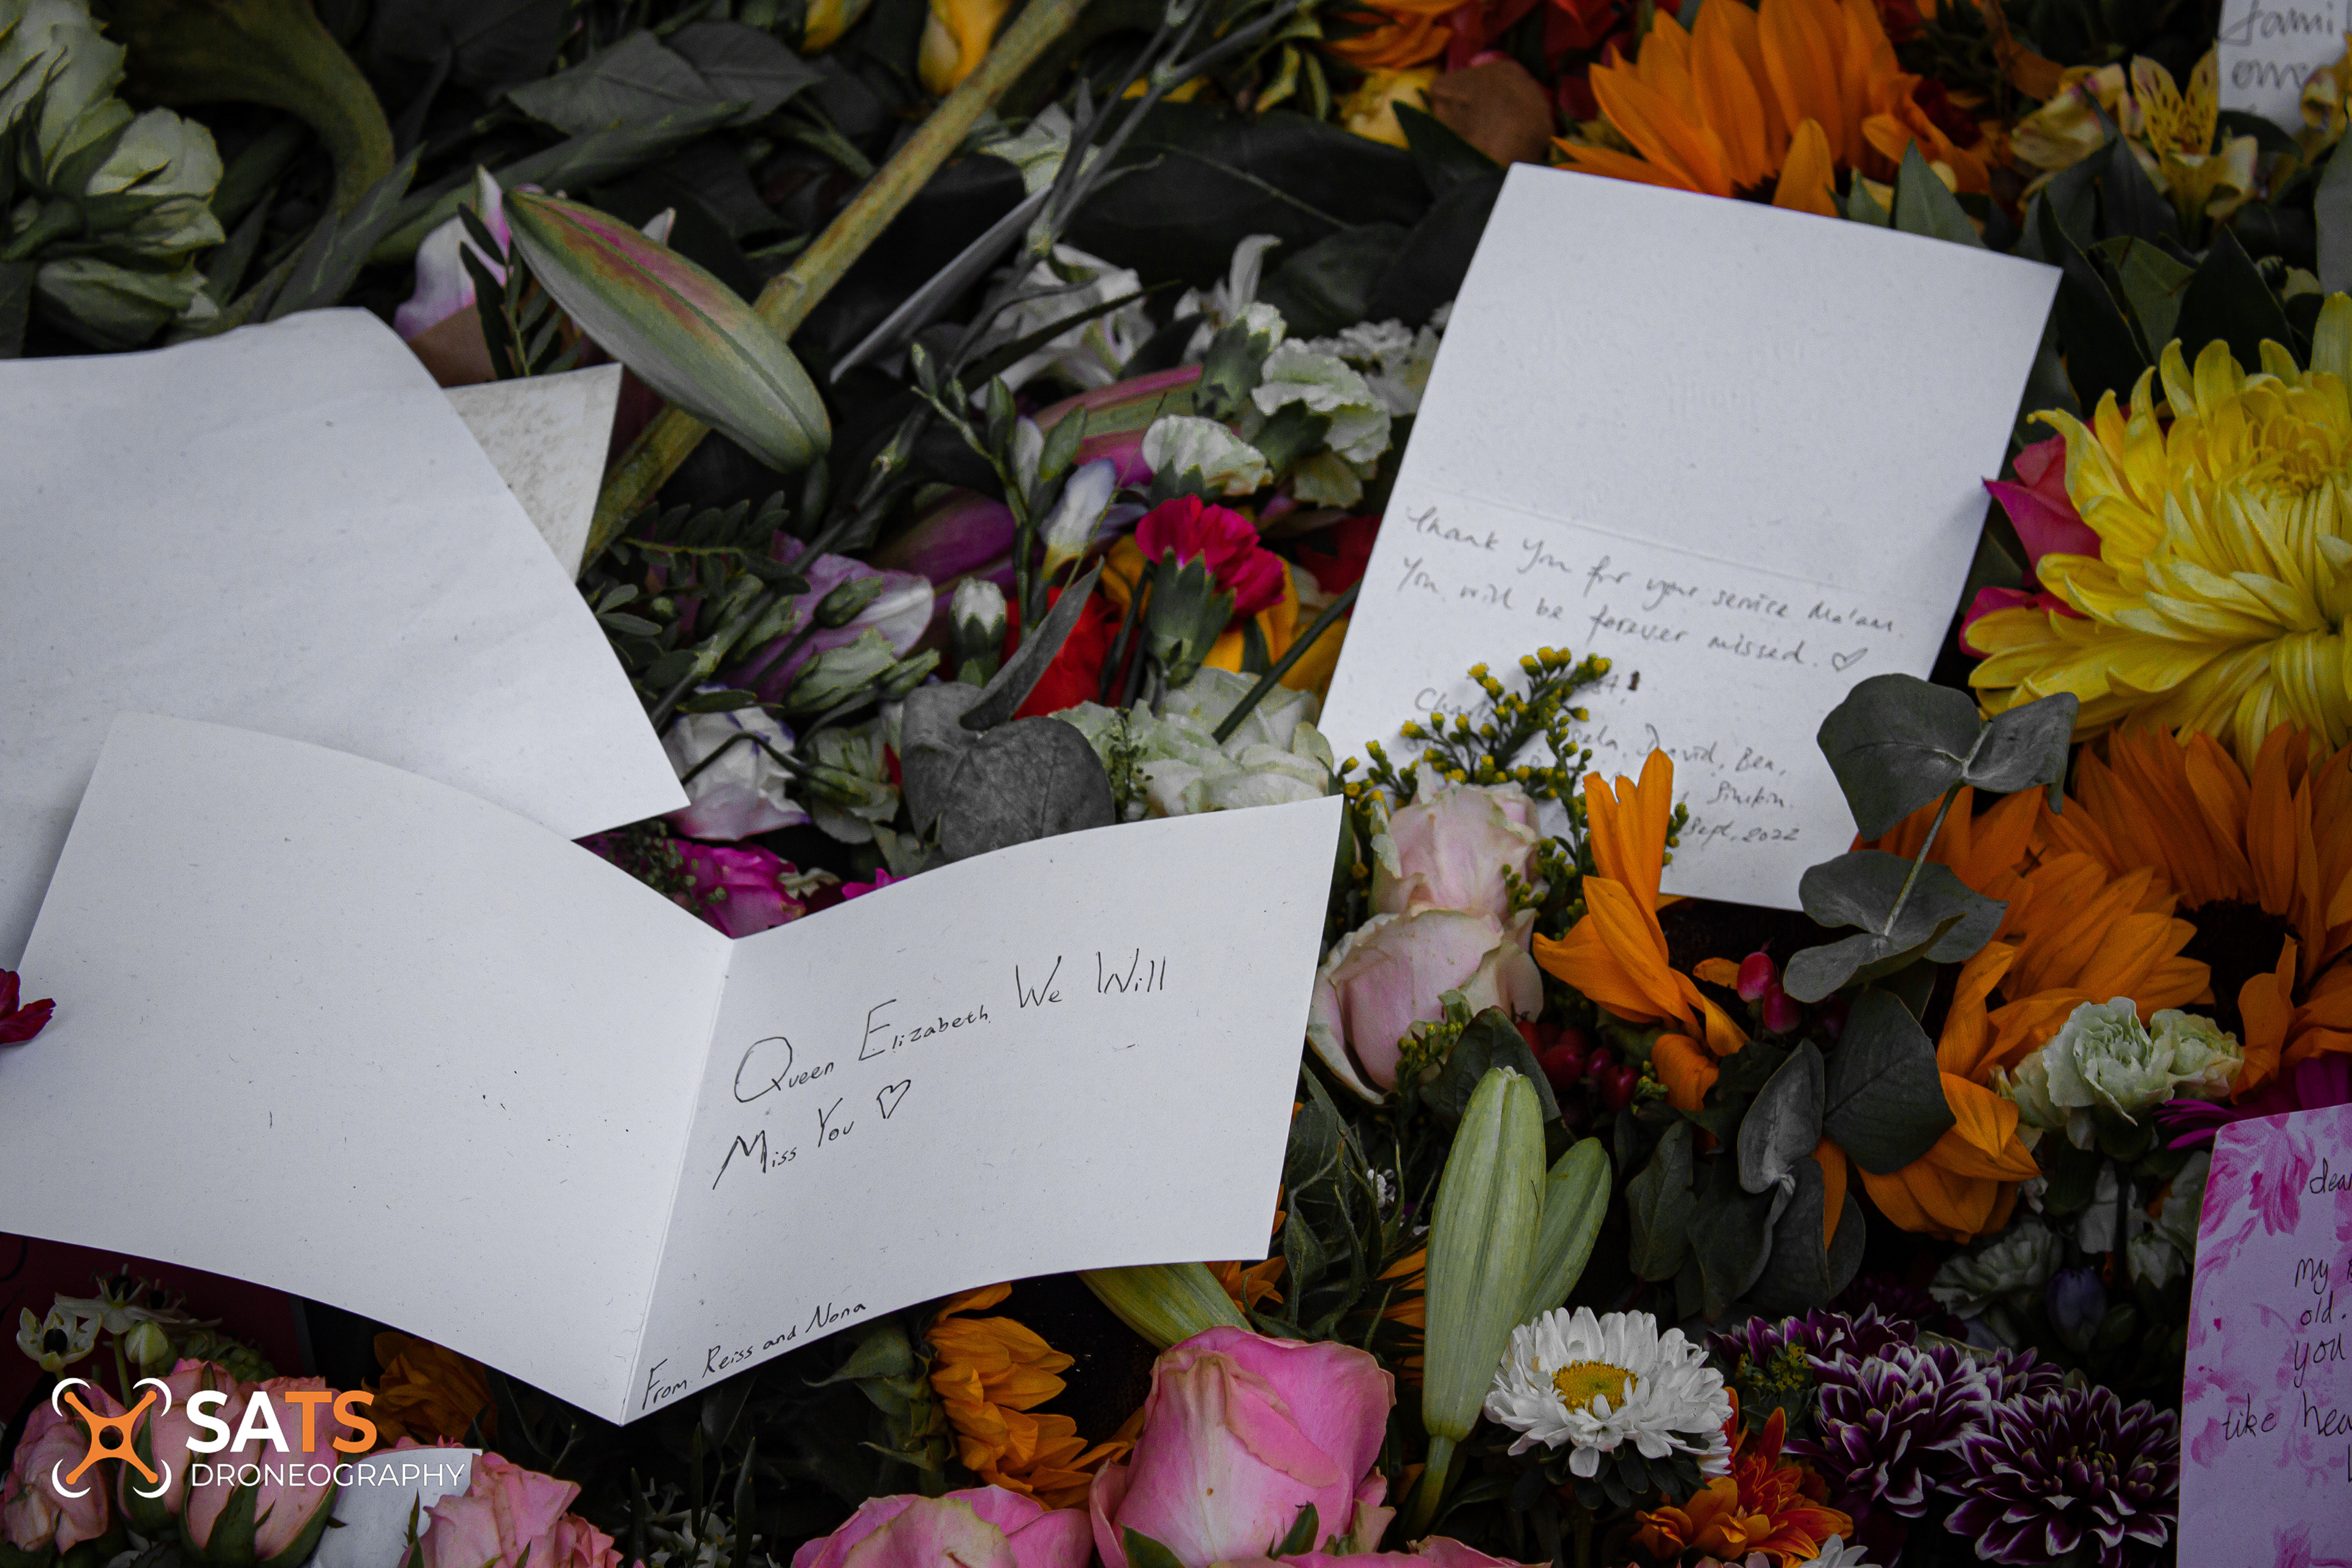 fami
Thank You for your service Ma'am.
You will be forever missed. ♡
David, Ben,
Simkin.
Sept, 2022
Queen Elizabeth We Will
Miss You ♡
From Reiss and Nona
dear
my
old.
you
like hea
SATS
DRONEOGRAPHY